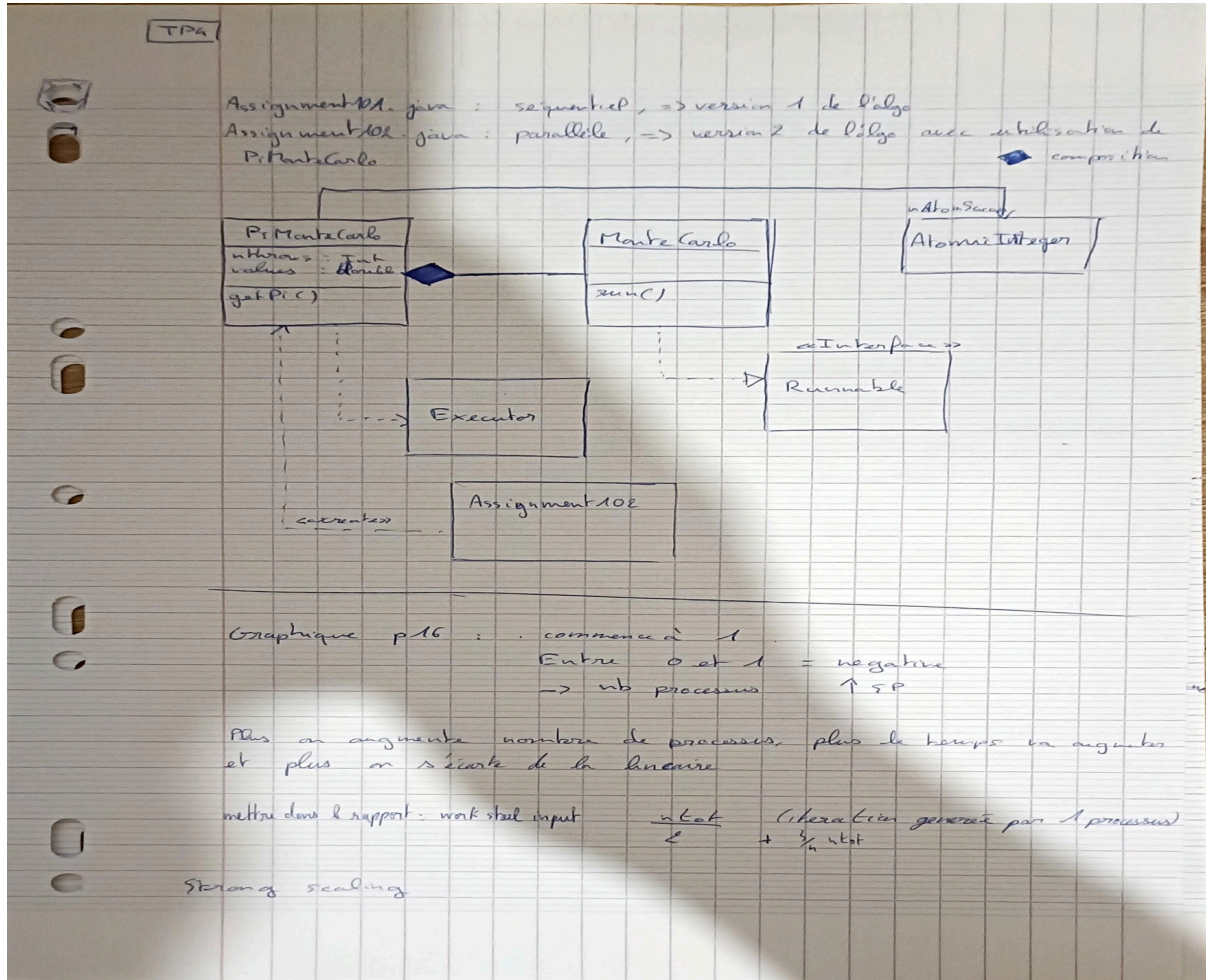 TP4
Assignment101.java : séquentiel, => version 1 de l'algo
Assignment102.java : parallèle, => version 2 de l'algo avec utilisation de
PiMonteCarlo
composition
nAtomSuccess
PiMonteCarlo
nthrows : Int
values : double
getPi()
MonteCarlo
run()
AtomicInteger
<<Interface>>
Runnable
Executor
Assignment102
<<create>>
Graphique p16 : . commence à 1
Entre 0 et 1 = negative
-> nb processus ↑ SP
Plus on augmente nombre de processus, plus le temps va augmenter
et plus on s'écarte de la lineaire
mettre dans le rapport : work input
ntot (iteration generée par 1 processus)
+ ntot
Strong scaling